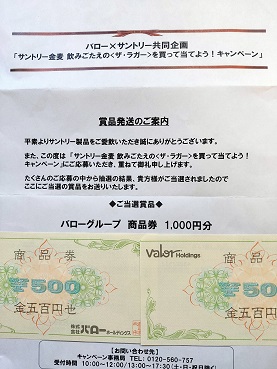 バロー×サントリー共同企画
「サントリー金麦 飲みごたえの<ザ・ラガー>を買って当てよう！キャンペーン」
賞品発送のご案内
平素よりサントリー製品をご愛飲いただき誠にありがとうございます。
また、この度は「サントリー金麦 飲みごたえの<ザ・ラガー>を買って当てよう！
キャンペーン」にご応募いただき、重ねて御礼申し上げます。
たくさんのご応募の中から抽選の結果、貴方様がご当選されましたので
ここにご当選の賞品をお送りいたします。
◆ご当選賞品◆
バローグループ 商品券 1,000円分
商品券
￥500
金五百円也
株式会社バローホールディングス
Valor Holdings
商品券
￥50
金五百円
【お問い合わせ先】
キャンペーン事務局 TEL: 0120-560-757
受付時間 10:00～12:00/13:00～17:30(土・日・祝日除く)